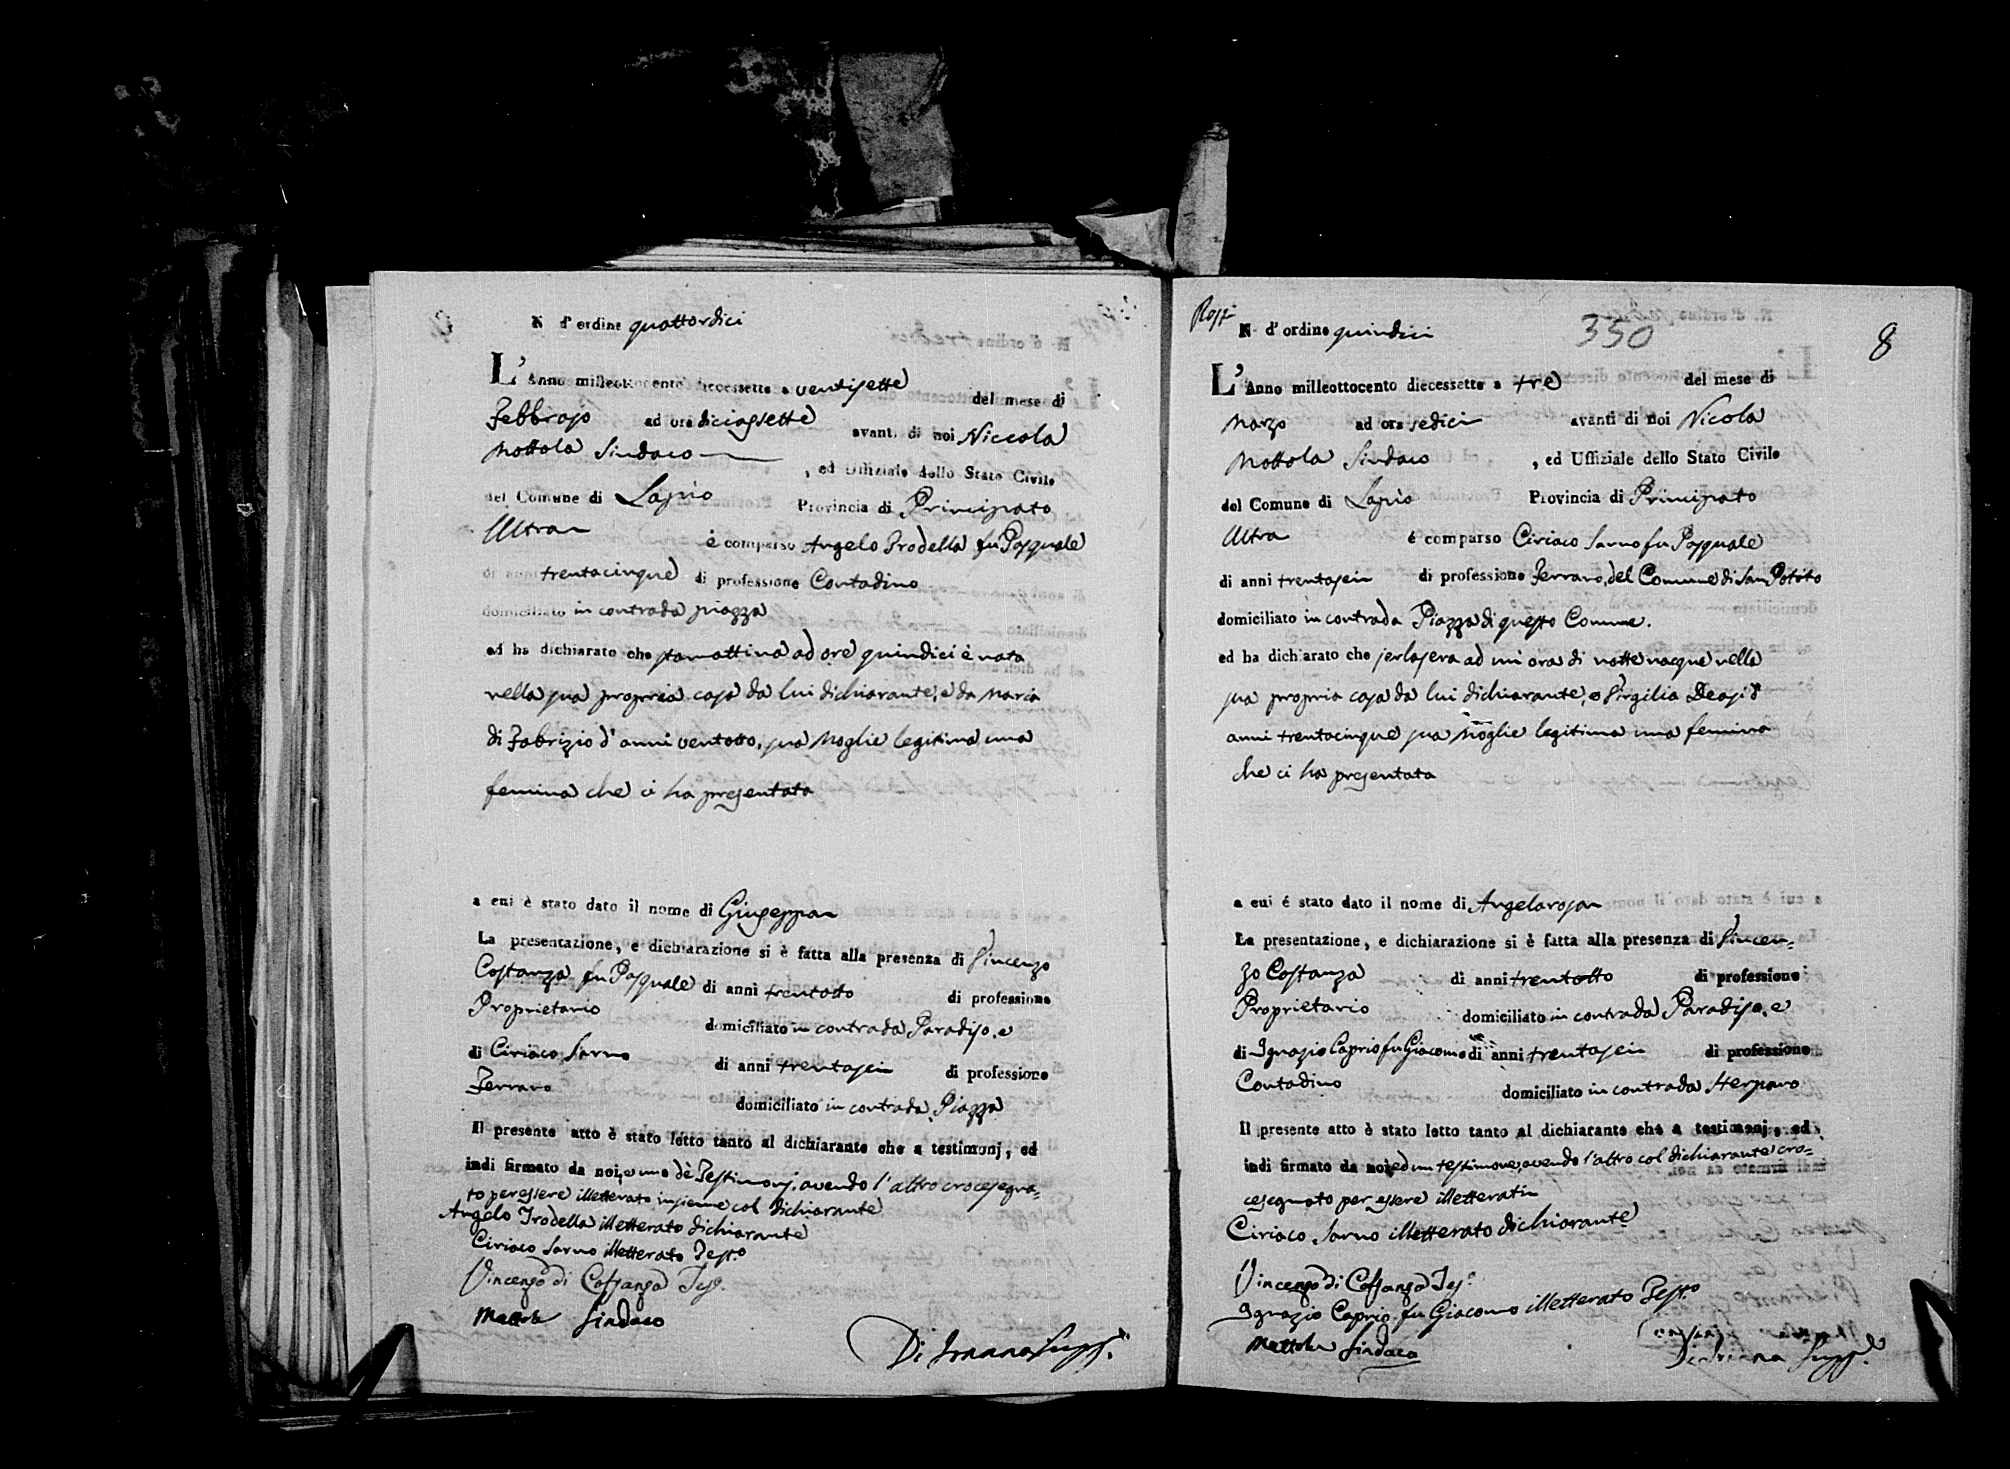 N d'ordine quattordici
L'Anno milleottocento diecessette a ventisette del mese di
Febbrajo ad ora diciassette avanti di noi Niccola
Mottola Sindaco , ed Uffiziale dello Stato Civile
del Comune di Lapio Provincia di Principato
Ultra è comparso Angelo Trodella fu Pasquale
di anni trentacinque di professione Contadino
domiciliato in contrada piazza
ed ha dichiarato che stamattina ad ore quindici è nata
nella sua propria casa da lui dichiarante, e da Maria
di Fabrizio d'anni ventotto, sua Moglie legitima una
femina che ci ha presentata
a cui è stato dato il nome di Giuseppa
La presentazione, e dichiarazione si è fatta alla presenza di Vincenzo
Costanza fu Pasquale di anni trentotto di professione
Proprietario domiciliato in contrada Paradiso, e
di Ciriaco Sarno di anni trentasei di professione
Ferraro domiciliato in contrada Piazza
Il presente atto è stato letto tanto al dichiarante che a testimonj, ed
indi firmato da noi, e uno dè Testimonj, avendo l'altro crocesegna-
to per essere illetterato insieme col dichiarante
Angelo Trodella illetterato dichiarante
Ciriaco Sarno illetterato Testo
Vincenzo di Costanza Tes.
Mottola Sindaco
N d'ordine quindici 350 8
L'Anno milleottocento diecessette a tre del mese di
Marzo ad ora sedici avanti di noi Nicola
Mottola Sindaco , ed Uffiziale dello Stato Civile
del Comune di Lapio Provincia di Principato
Ultra è comparso Ciriaco Sarno fu Pasquale
di anni trentasei di professione Ferraro, del Comune di San Potito
domiciliato in contrada Piazza di questo Comune.
ed ha dichiarato che jerlasera ad un'ora di notte nacque nella
sua propria casa da lui dichiarante, e Virgilia
anni trentacinque sua Moglie legitima una femina
che ci ha presentata
a cui é stato dato il nome di Angelarosa
La presentazione, e dichiarazione si è fatta alla presenza di Vincen-
zo Costanza di anni trentotto di professione
Proprietario domiciliato in contrada Paradiso, e
di Ignazio Caprio fu Giacomo di anni trentasei di professione
Contadino domiciliato in contrada
Il presente atto è stato letto tanto al dichiarante che a testimonj, ed
indi firmato da noi, ed un testimone, avendo l'altro col dichiarante cro-
cesegnato per essere illetterati
Ciriaco Sarno illetterato dichiarante
Vincenzo di Costanza Tes.
Ignazio Caprio fu Giacomo illetterato Testo
Mottola Sindaco